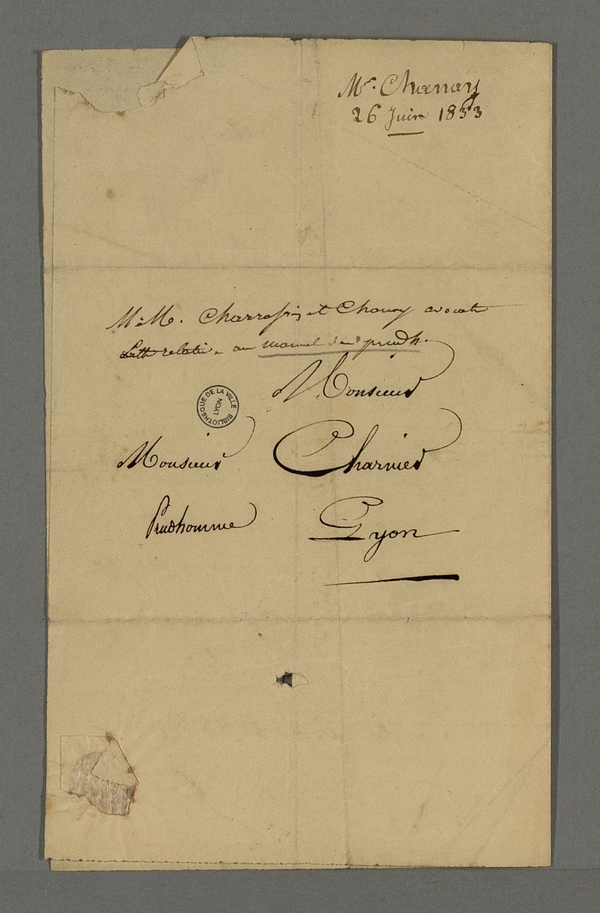 Mr. Chanay
26 Juin 1833
M.M. Charrassin et Chanay avocats
relative au manuel des prudh.
Monsieur
BIBLIOTHEQUE DE LA VILLE
LYON
Monsieur Charnier
Prudhomme Lyon